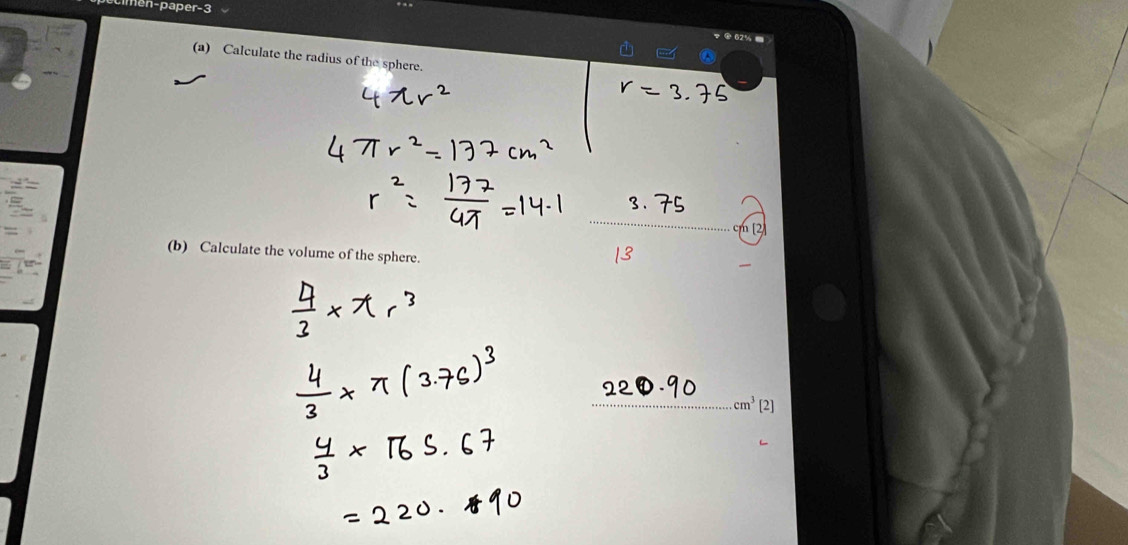 cimen-paper-3
62%
(a) Calculate the radius of the sphere.
4πr²
r = 3.75
4πr² = 177 cm²
r² = 177/4π = 14.1
3.75 cm [2]
13
(b) Calculate the volume of the sphere.
4/3 × πr³
4/3 × π(3.75)³
220.90 cm³ [2]
4/3 × 165.67
= 220.90